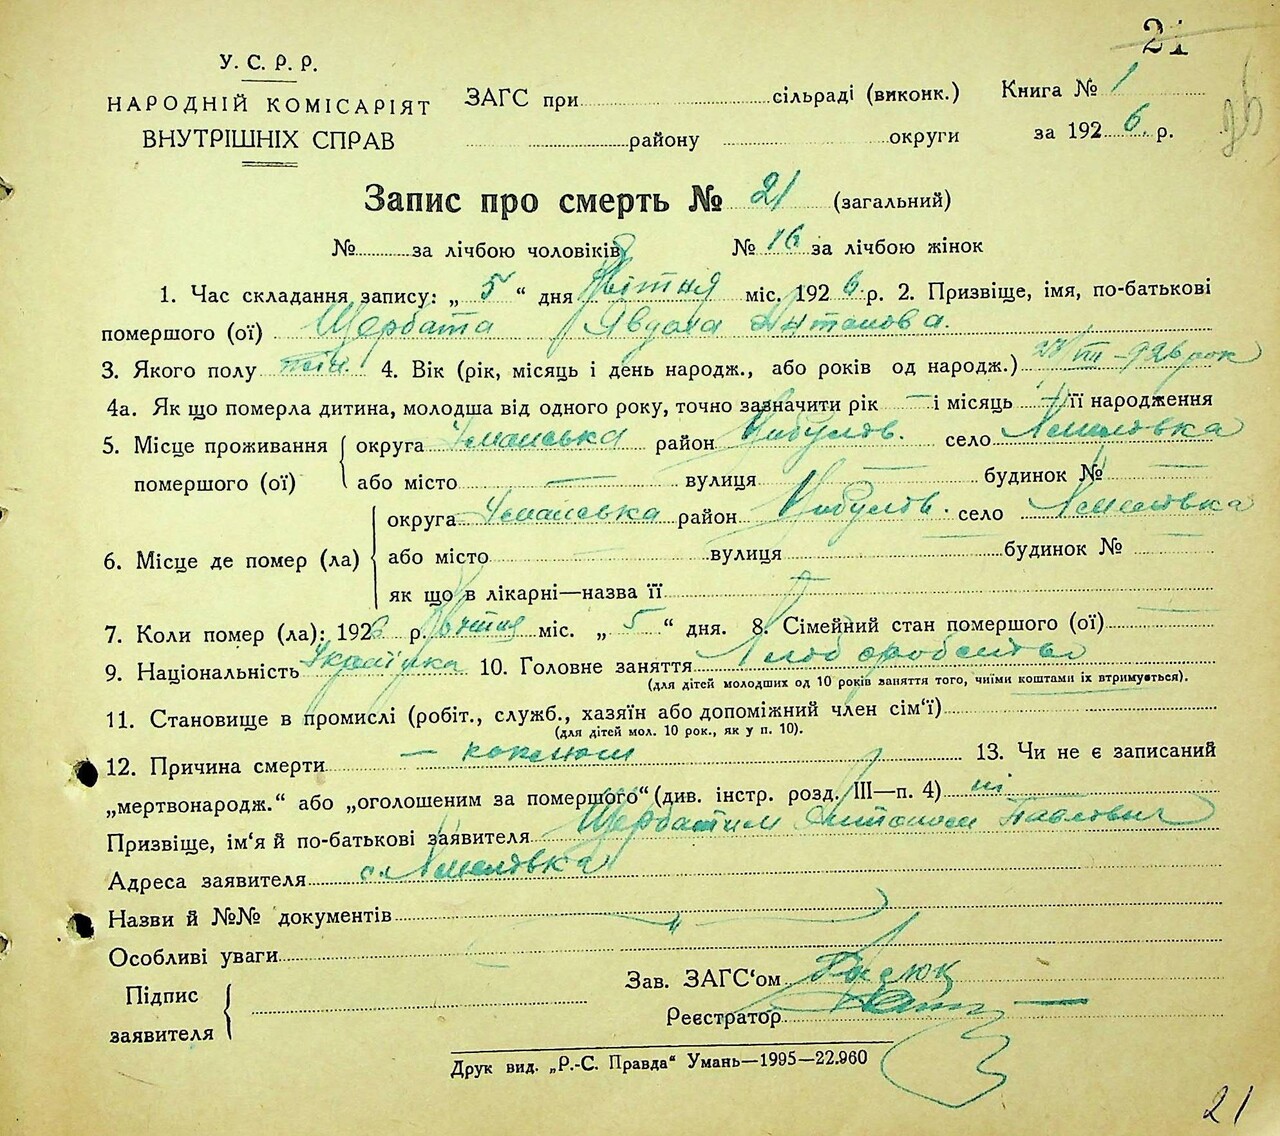 21
У. С. Р. Р.
НАРОДНІЙ КОМІСАРІЯТ
ВНУТРІШНІХ СПРАВ
ЗАГС при сільраді (виконк.)
району округи
Книга № 1
за 1926 р.
26
Запис про смерть № 21 (загальний)
№ за лічбою чоловіків № 16 за лічбою жінок
1. Час складання запису: „ 5 “ дня Квітня міс. 1926 р. 2. Призвіще, імя, по-батькові
помершого (ої) Щербата Явдоха Антонова.
3. Якого полу 4. Вік (рік, місяць і день народж., або років од народж.) 28/III – 926 рок
4а. Як що померла дитина, молодша від одного року, точно зазначити рік — і місяць — її народження
5. Місце проживання округа Уманська район Цибулів. село
помершого (ої) або місто — вулиця — будинок № —
округа Уманська район Цибулів. село
6. Місце де помер (ла) або місто — вулиця — будинок № —
як що в лікарні—назва її —
7. Коли помер (ла): 1926 р. Квітня міс. „ 5 “ дня. 8. Сімейний стан помершого (ої) —
9. Національність Українка 10. Головне заняття Хліборобство
(для дітей молодших од 10 років заняття того, чиїми коштами їх втримується).
11. Становище в промислі (робіт., служб., хазяїн або допоміжний член сім‘ї)
(для дітей мол. 10 рок., як у п. 10).
12. Причина смерти — коклюш 13. Чи не є записаний
„мертвонародж.“ або „оголошеним за помершого“ (див. інстр. розд. III—п. 4) ні
Призвіще, ім‘я й по-батькові заявителя Щербатим Антоном Павловичем
Адреса заявителя с.
Назви й №№ документів „
Особливі уваги
Підпис
заявителя
Зав. ЗАГС‘ом
Реєстратор
Друк вид. „Р.-С. Правда“ Умань—1995—22.960
21